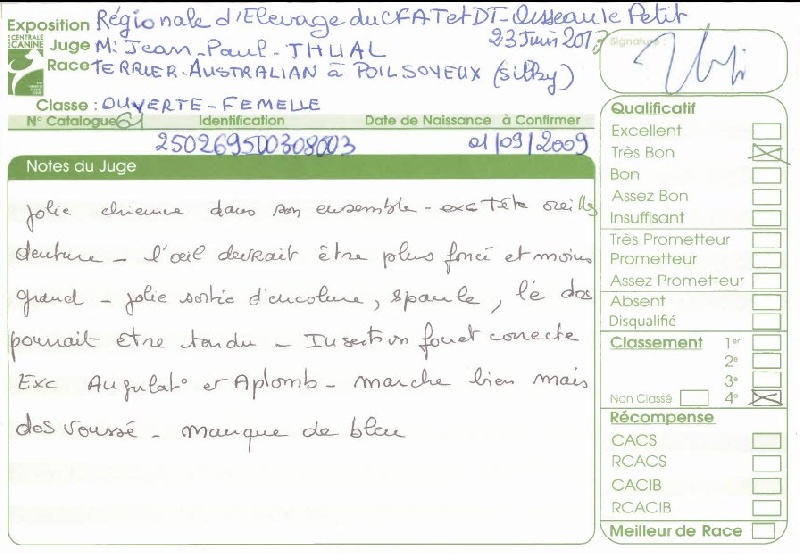 Exposition Régionale d'Elevage du CFATetDT-Oisseau le Petit
CENTRALE
CANINE
Juge M: Jean-Paul-THUAL 23 Juin 2013
Race TERRIER-AUSTRALIAN à POIL SOYEUX (silky)
Classe : OUVERTE-FEMELLE
Signature :
N° Catalogue 61 Identification Date de Naissance à Confirmer
250269500308003 01/09/2009
Notes du Juge
Jolie chienne dans son ensemble - exc tête oreilles
denture - l'œil devrait être plus foncé et moins
grand - jolie sortie d'encolure, épaule, le dos
pourrait être tendu - Insertion fouet correcte
Exc Angulat° et Aplomb - marche bien mais
dos voussé - manque de bleu
Qualificatif
Excellent
Très Bon
Bon
Assez Bon
Insuffisant
Très Prometteur
Prometteur
Assez Prometteur
Absent
Disqualifié
Classement 1er
2e
3e
Non Classé 4e
Récompense
CACS
RCACS
CACIB
RCACIB
Meilleur de Race